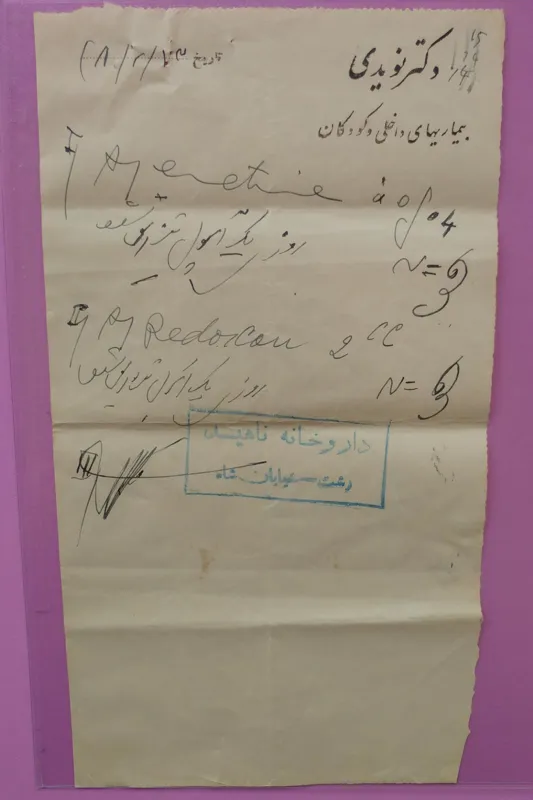 دکتر نویدی
تاریخ ۲۸/۲/۲۳
بیماریهای داخلی و کودکان
I) Amp Emetine à 0g 04
روزی یک آمپول تزریق شود
N=6
II) Amp Redoxon 2 cc
روزی یک آمپول تزریق شود
N=6
داروخانه ناهید
رشت - خیابان شاه
III)